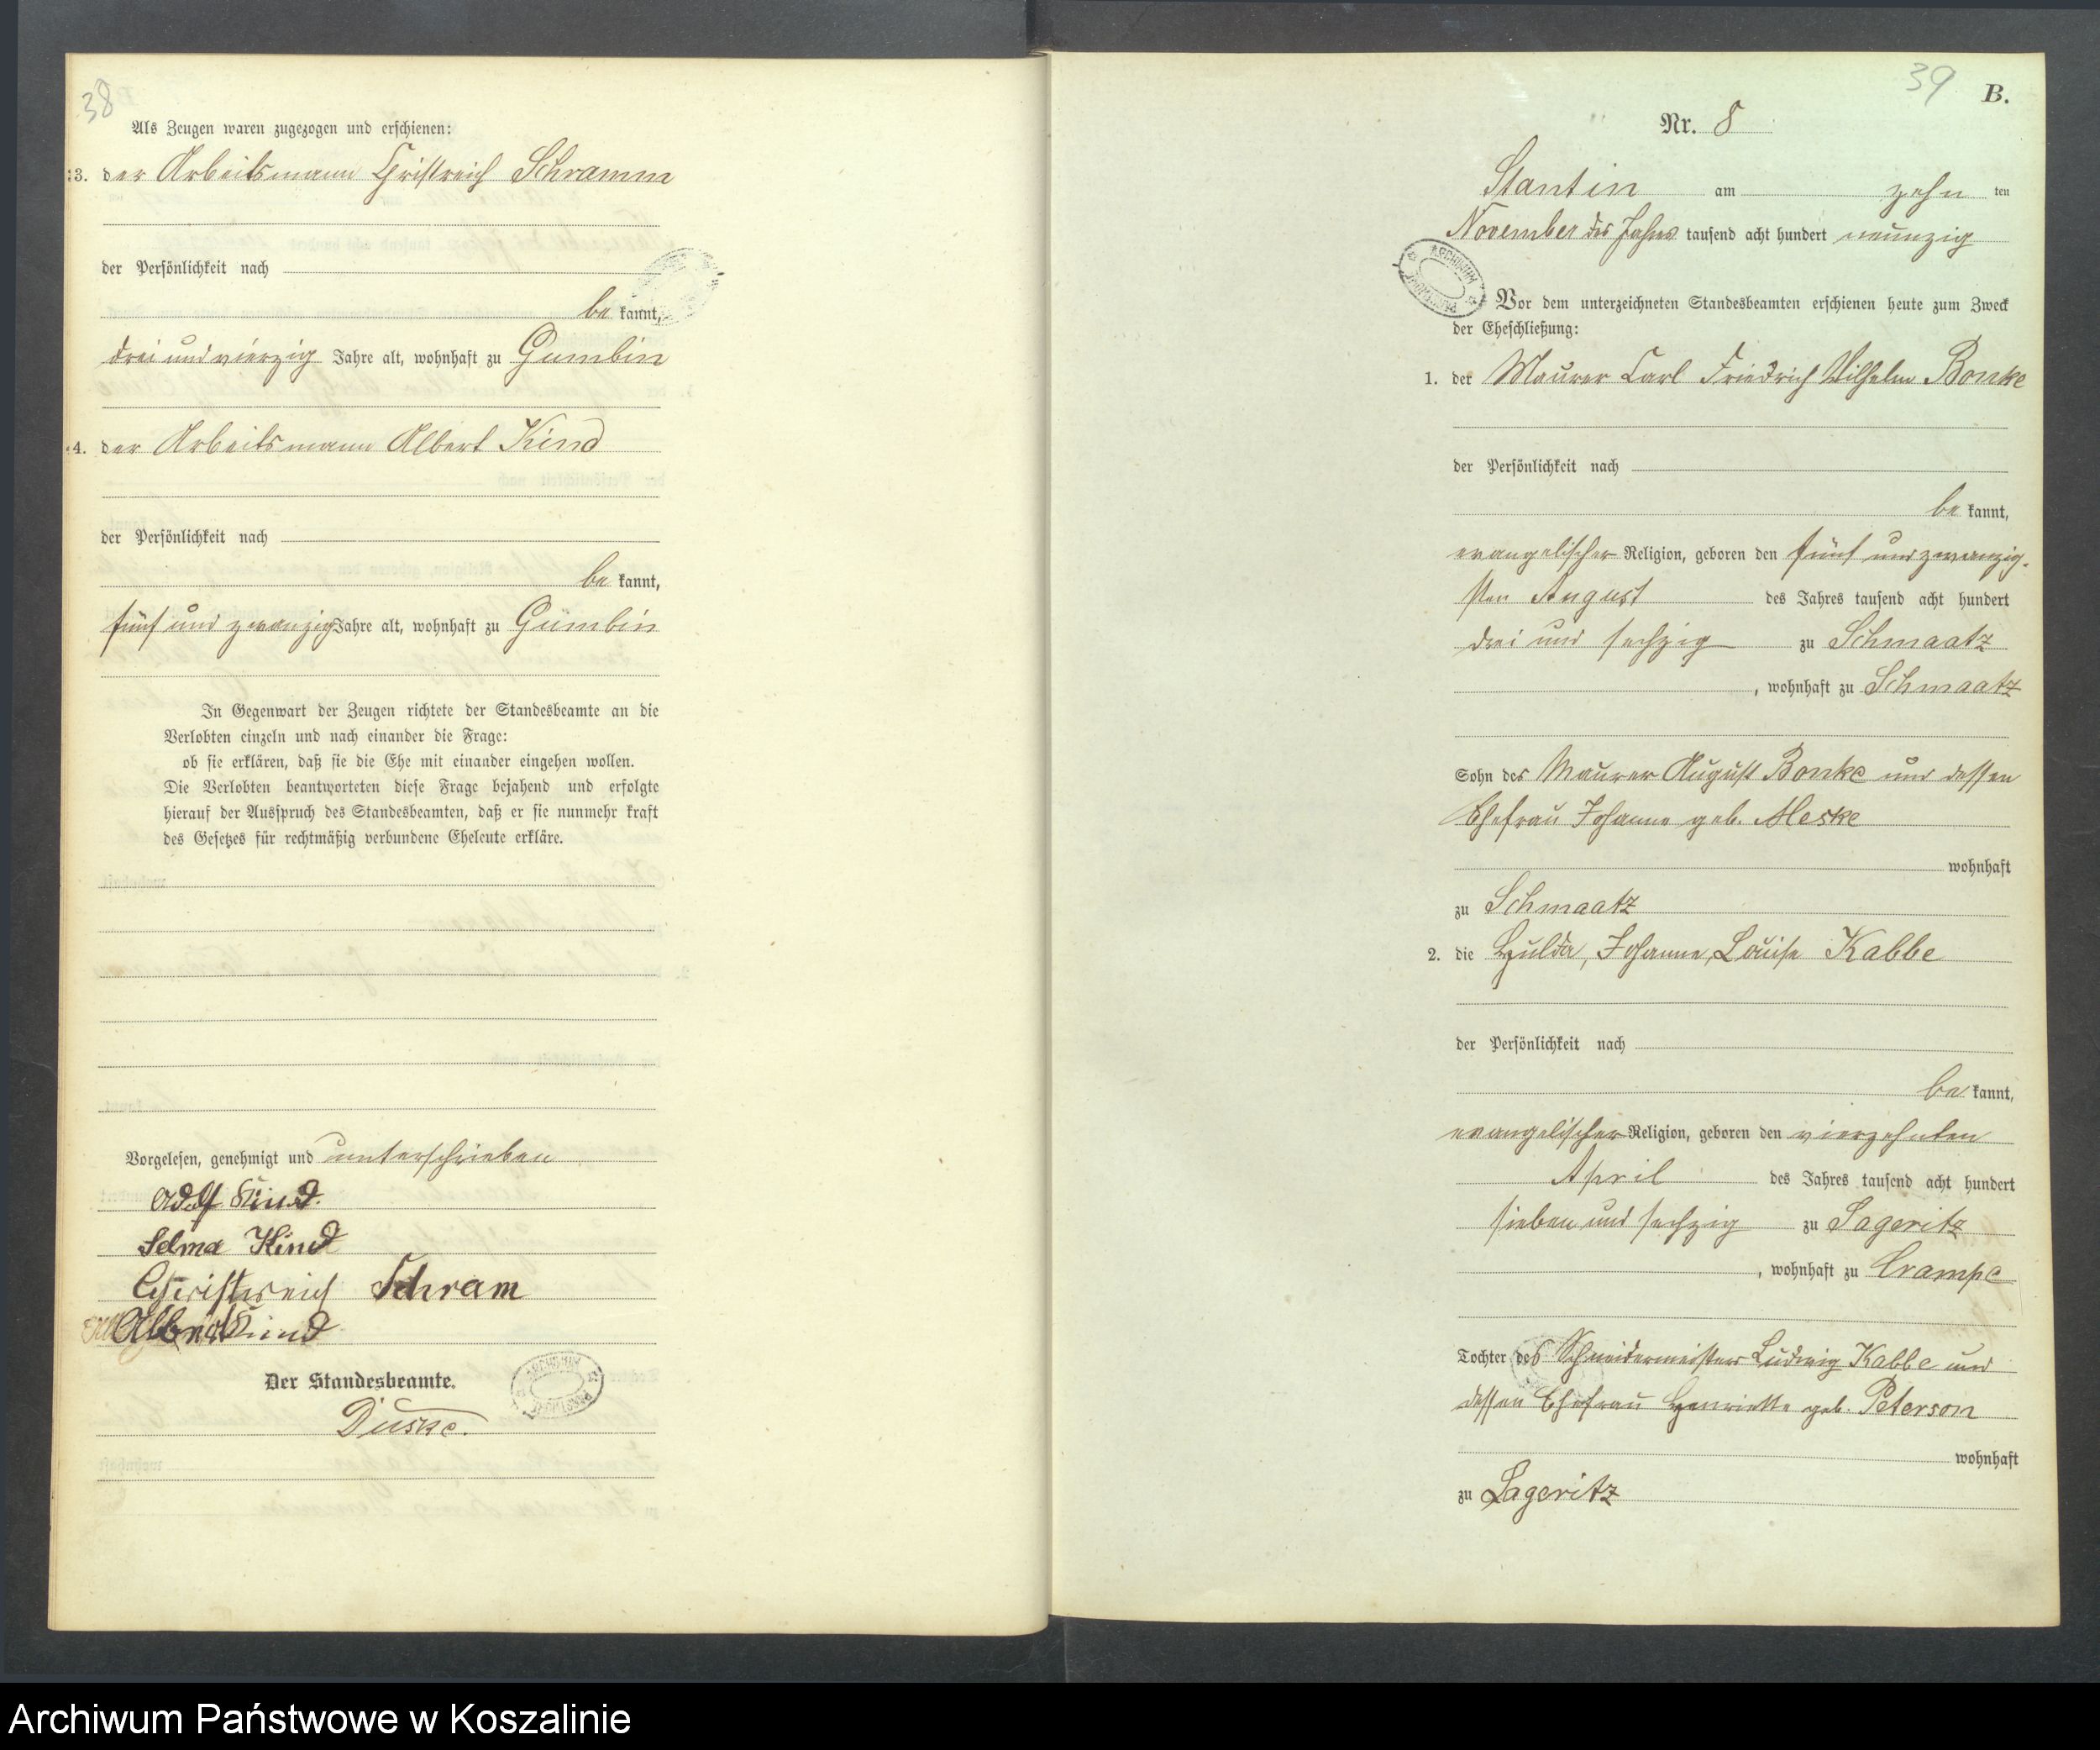 38
Als Zeugen waren zugezogen und erschienen:
3. der Arbeitsmann Christreich Schramm
der Persönlichkeit nach
be kannt,
drei und vierzig Jahre alt, wohnhaft zu Gumbin
4. der Arbeitsmann Albert Kind
der Persönlichkeit nach
be kannt,
fünf und zwanzig Jahre alt, wohnhaft zu Gumbin
In Gegenwart der Zeugen richtete der Standesbeamte an die
Verlobten einzeln und nach einander die Frage:
ob sie erklären, daß sie die Ehe mit einander eingehen wollen.
Die Verlobten beantworteten diese Frage bejahend und erfolgte
hierauf der Ausspruch des Standesbeamten, daß er sie nunmehr kraft
des Gesetzes für rechtmäßig verbundene Eheleute erkläre.
Vorgelesen, genehmigt und unterschrieben
Adolf Kind.
Selma Kind
Christreich Schram
Albert Kind
Der Standesbeamte.
39
B.
Nr. 8
Stantin am zehn ten
November des Jahres tausend acht hundert neunzig
Vor dem unterzeichneten Standesbeamten erschienen heute zum Zweck
der Eheschließung:
1. der Maurer Carl Friedrich Wilhelm Bonke
der Persönlichkeit nach
be kannt,
evangelischer Religion, geboren den fünf und zwanzig-
sten August des Jahres tausend acht hundert
drei und sechzig zu Schmaatz
, wohnhaft zu Schmaatz
Sohn des Maurer August Bonke und dessen
Ehefrau Johanne geb. Meske
wohnhaft
zu Schmaatz
2. die Hulda, Johanne, Louise Kabbe
der Persönlichkeit nach
be kannt,
evangelischer Religion, geboren den vierzehnten
April des Jahres tausend acht hundert
sieben und sechzig zu Sageritz
, wohnhaft zu Crampe
Tochter des Schneidermeisters Ludwig Kabbe und
dessen Ehefrau Henriette geb. Peterson
wohnhaft
zu Sageritz
Archiwum Państwowe w Koszalinie